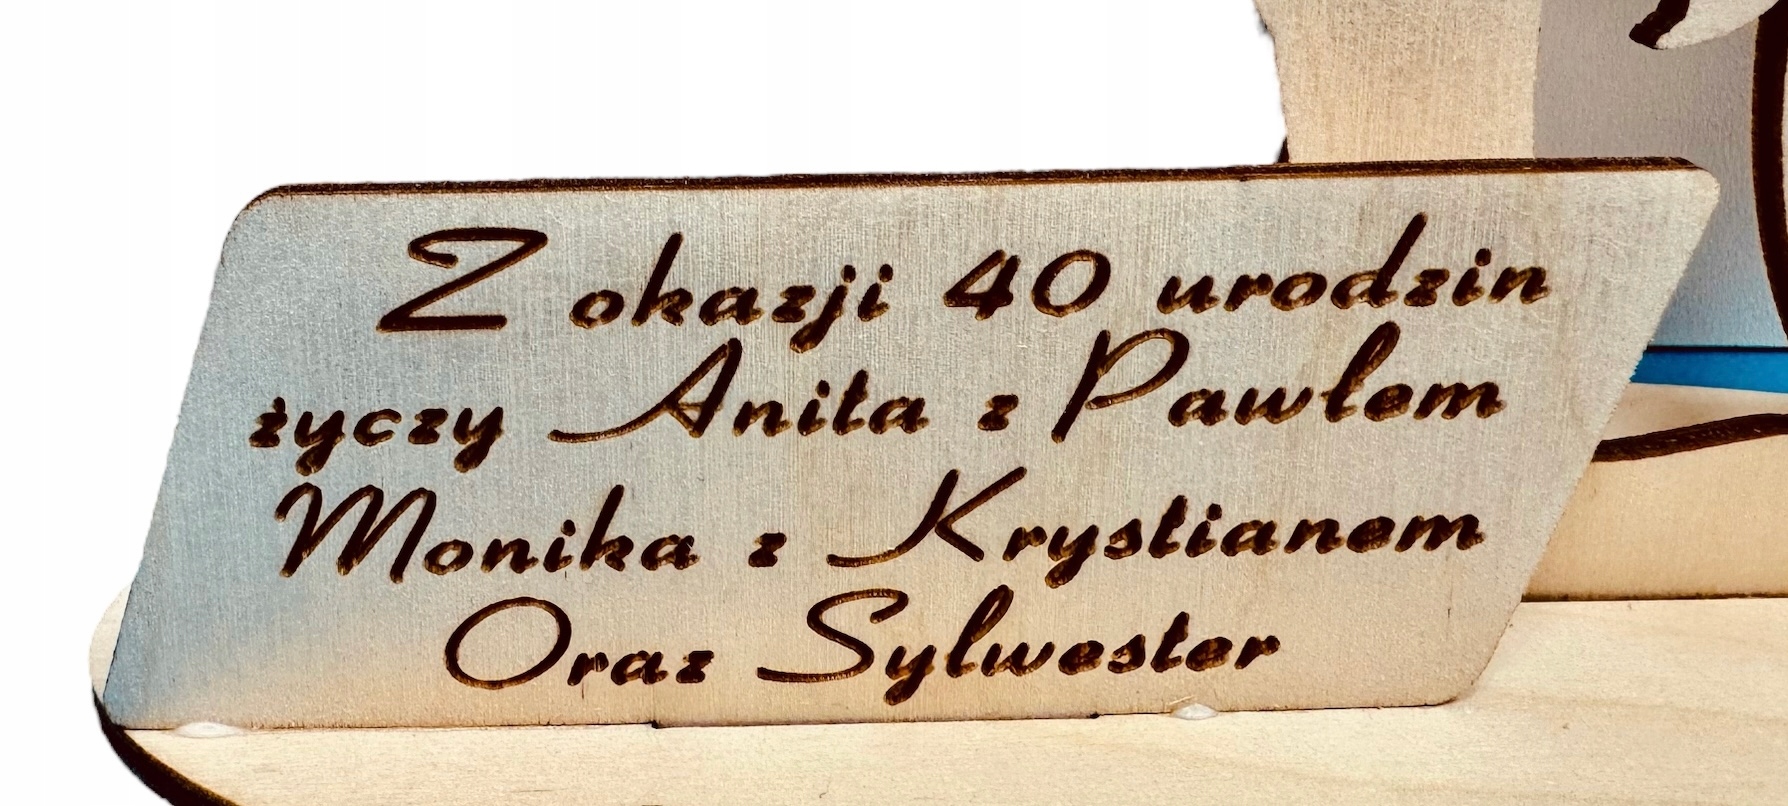 Z okazji 40 urodzin
życzy Anita z Pawłem
Monika z Krystianem
Oraz Sylwester